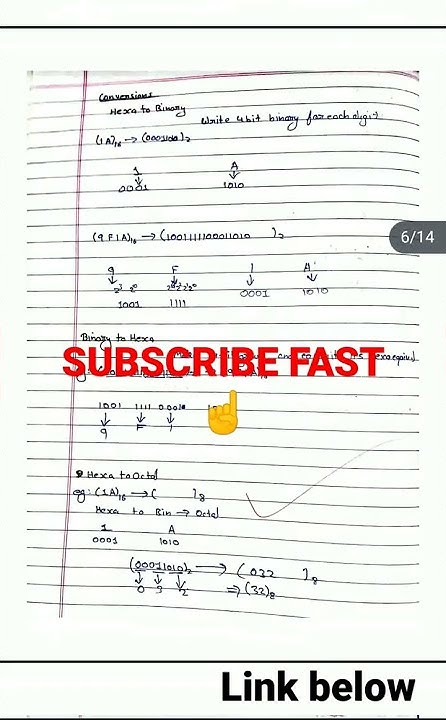 Conversions
Hexa to Binary
Write 4bit binary for each digit
(1A)₁₆ → (00011010)₂
1 A
0001 1010
(9F1A)₁₆ → (1001111100011010 )₂
6/14
9 F 1 A
2³ 2⁰ 2³2²2¹2⁰ 0001 1010
1001 1111
Binary to Hexa
SUBSCRIBE FAST
1001 1111 0001
9 F 1
Hexa to Octal
eg: (1A)₁₆ → ( )₈
Hexa to Bin → Octal
1 A
0001 1010
(00011010)₂ → (032 )₈
0 3 2 ⇒ (32)₈
Link below